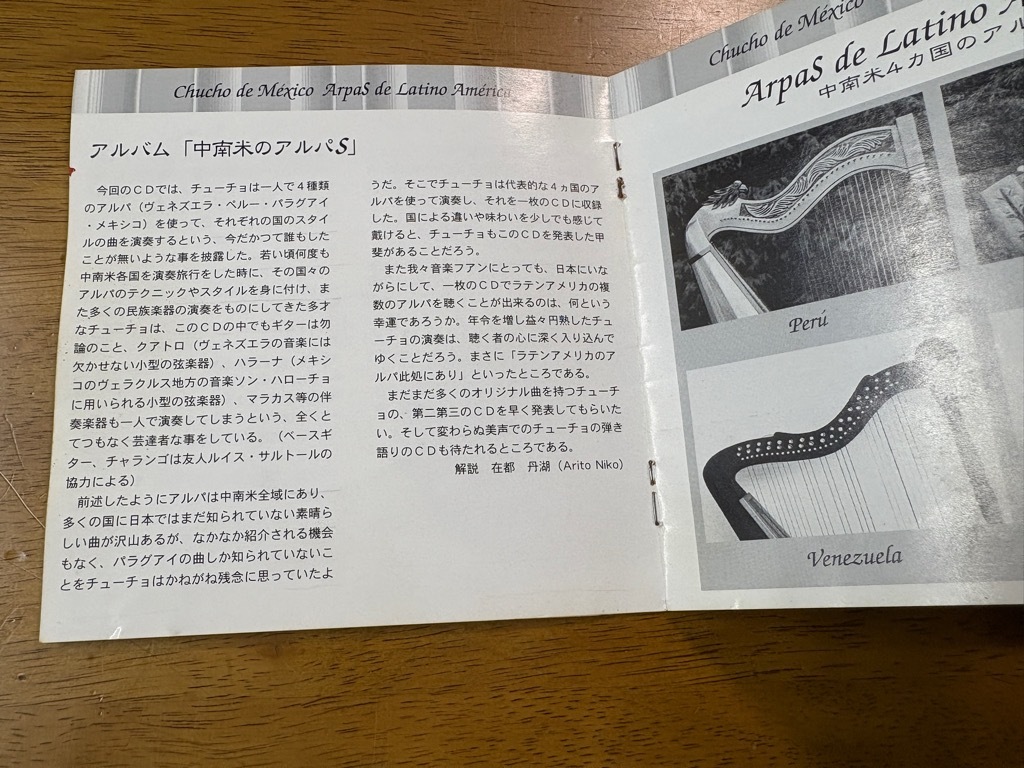 Chucho de México ArpaS de Latino América
アルバム「中南米のアルパS」
今回のCDでは、チューチョは一人で4種類
のアルパ(ヴェネズエラ・ペルー・パラグアイ
・メキシコ)を使って、それぞれの国のスタイ
ルの曲を演奏するという、今だかつて誰もした
ことが無いような事を披露した。若い頃何度も
中南米各国を演奏旅行をした時に、その国々の
アルパのテクニックやスタイルを身に付け、ま
た多くの民族楽器の演奏をものにしてきた多才
なチューチョは、このCDの中でもギターは勿
論のこと、クアトロ(ヴェネズエラの音楽には
欠かせない小型の弦楽器)、ハラーナ(メキシ
コのヴェラクルス地方の音楽ソン・ハローチョ
に用いられる小型の弦楽器)、マラカス等の伴
奏楽器も一人で演奏してしまうという、全くと
てつもなく芸達者な事をしている。(ベースギ
ター、チャランゴは友人ルイス・サルトールの
協力による)
前述したようにアルパは中南米全域にあり、
多くの国に日本ではまだ知られていない素晴ら
しい曲が沢山あるが、なかなか紹介される機会
もなく、パラグアイの曲しか知られていないこ
とをチューチョはかねがね残念に思っていたよ
うだ。そこでチューチョは代表的な4ヵ国のア
ルパを使って演奏し、それを一枚のCDに収録
した。国による違いや味わいを少しでも感じて
戴けると、チューチョもこのCDを発表した甲
斐があることだろう。
また我々音楽フアンにとっても、日本にいな
がらにして、一枚のCDでラテンアメリカの複
数のアルパを聴くことが出来るのは、何という
幸運であろうか。年令を増し益々円熟したチュ
ーチョの演奏は、聴く者の心に深く入り込んで
ゆくことだろう。まさに「ラテンアメリカのア
ルパ此処にあり」といったところである。
まだまだ多くのオリジナル曲を持つチューチ
ョの、第二第三のCDを早く発表してもらいた
い。そして変わらぬ美声でのチューチョの弾き
語りのCDも待たれるところである。
解説 在都 丹湖(Arito Niko)
Chucho de México
ArpaS de Latino A
中南米4ヵ国のアル
Perú
Venezuela